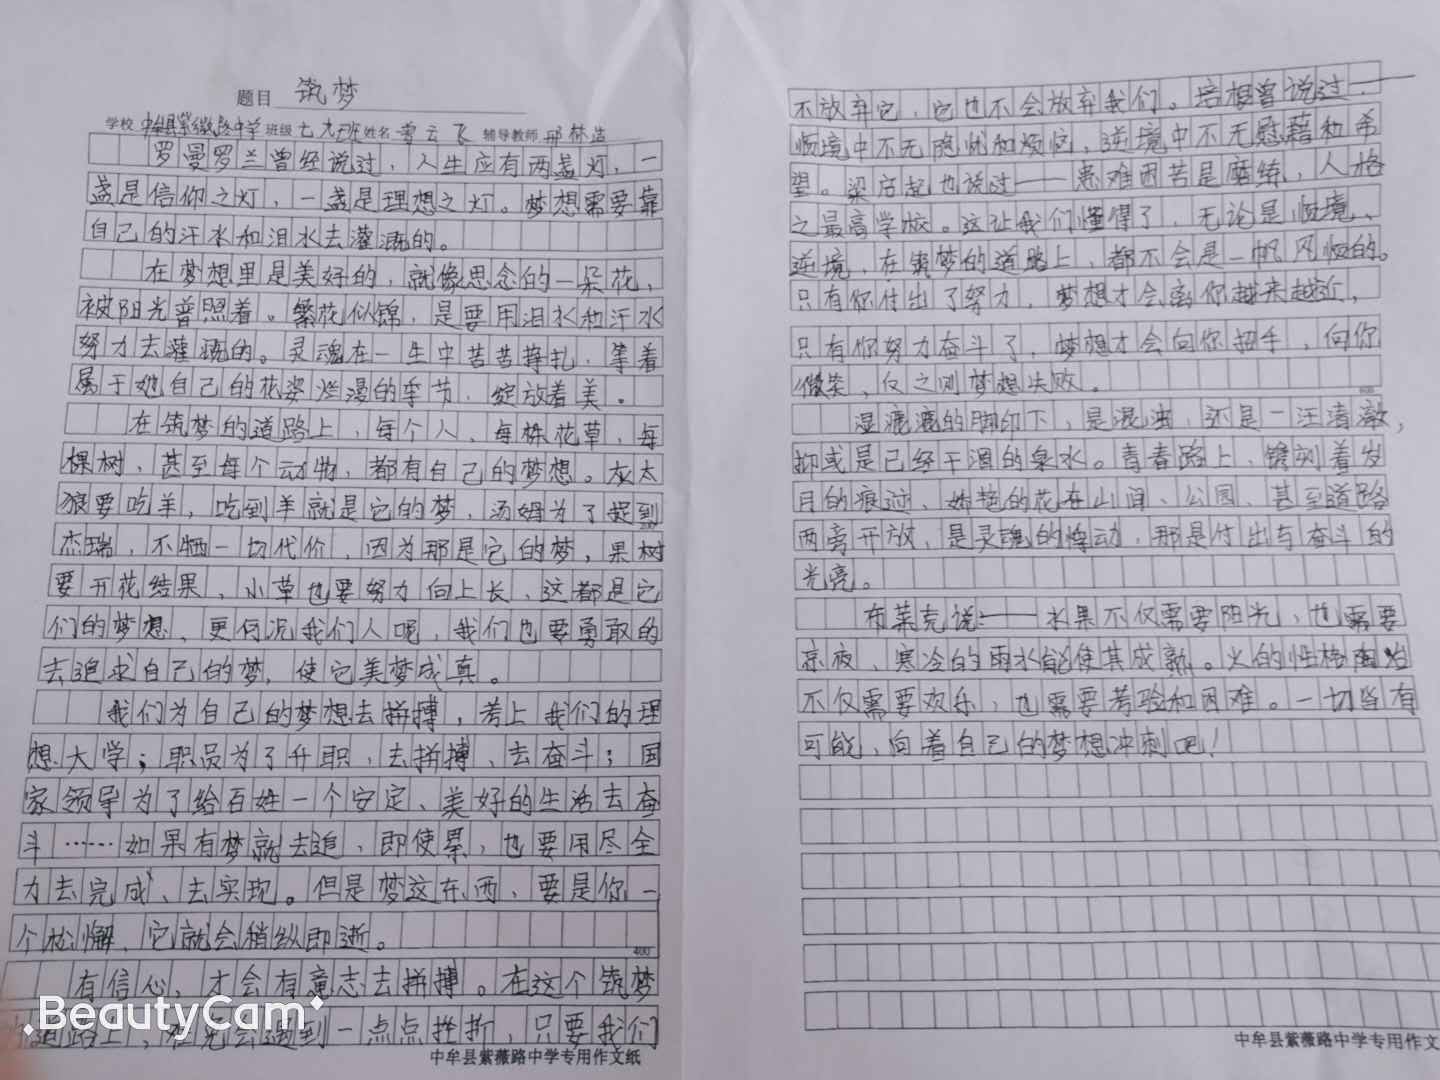 题目 筑梦
学校 中牟县紫薇路中学 班级 七九班 姓名 曹云飞 辅导教师 邢林浩
罗曼罗兰曾经说过，人生应有两盏灯，一
盏是信仰之灯，一盏是理想之灯。梦想需要靠
自己的汗水和泪水去灌溉的。
在梦想里是美好的，就像思念的一朵花，
被阳光普照着。繁花似锦，是要用泪水和汗水
努力去灌溉的。灵魂在一生中苦苦挣扎，等着
属于她自己的花姿烂漫的季节，绽放着美。
在筑梦的道路上，每个人、每株花草，每
棵树、甚至每个动物，都有自己的梦想。灰太
狼要吃羊，吃到羊就是它的梦，汤姆为了捉到
杰瑞，不牺一切代价，因为那是它的梦，果树
要开花结果，小草也要努力向上长，这都是它
们的梦想，更何况我们人呢，我们也要勇敢的
去追求自己的梦，使它美梦成真。
我们为自己的梦想去拼搏，考上我们的理
想大学；职员为了升职，去拼搏、去奋斗；国
家领导为了给百姓一个安定、美好的生活去奋
斗……如果有梦就去追，即使累，也要用尽全
力去完成、去实现。但是梦这东西，要是你一
个松懈，它就会稍纵即逝。
400
有信心，才会有意志去拼搏。在这个筑梦
道路上，难免会遇到一点点挫折，只要我们
中牟县紫薇路中学专用作文纸
BeautyCam
不放弃它，它也不会放弃我们。培根曾说过——
顺境中不无隐忧和烦恼，逆境中不无慰藉和希
望。梁启超也说过——患难困苦是磨练，人格
之最高学校。这让我们懂得了，无论是顺境、
逆境，在筑梦的道路上，都不会是一帆风顺的。
只有你付出了努力，梦想才会离你越来越近，
只有你努力奋斗了，梦想才会向你招手，向你
微笑，反之则梦想失败。
600
湿漉漉的脚印下，是混浊，还是一汪清澈，
抑或是已经干涸的泉水。青春路上，镌刻着岁
月的痕迹，她艳的花在山间、公园、甚至道路
两旁开放，是灵魂的悸动，那是付出与奋斗的
光亮。
布莱克说：——水果不仅需要阳光，也需要
凉夜，寒冷的雨水能使其成熟。人的性格陶冶
不仅需要欢乐，也需要考验和困难。一切皆有
可能，向着自己的梦想冲刺吧！
中牟县紫薇路中学专用作文